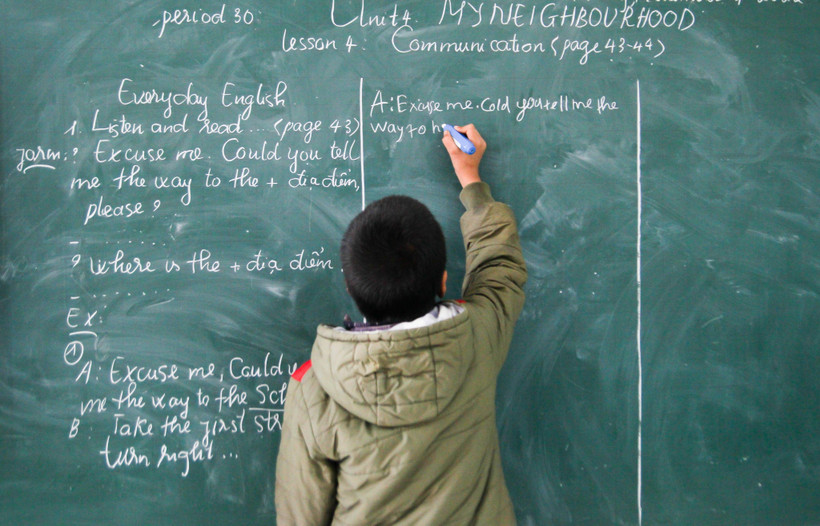 period 30
Unit 4. MY NEIGHBOURHOOD
lesson 4: Communication (page 43-44)
Everyday English
1. Listen and read ... (page 43)
form: ? Excuse me. Could you tell
me the way to the + địa điểm,
please?
- .......
? Where is the + địa điểm.
- .......
Ex:
1
A: Excuse me, Could
me the way to the Sch
B: Take the first str
turn right ...
A: Excuse me. Cold you tell me the
way to h